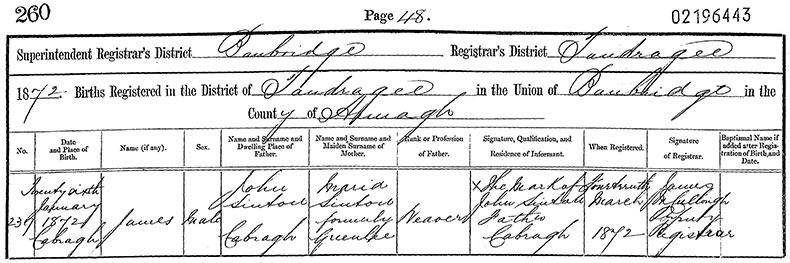 260 Page 48. 02196443
Superintendent Registrar's District Banbridge Registrar's District Tandragee
1872 Births Registered in the District of Tandragee in the Union of Banbridge in the
County of Armagh
No. Date and Place of Birth. Name (if any). Sex. Name and Surname and Dwelling Place of Father. Name and Surname and Maiden Surname of Mother. Rank or Profession of Father. Signature, Qualification, and Residence of Informant. When Registered. Signature of Registrar. Baptismal Name if added after Registration of Birth, and Date.
Twenty sixth January 1872 Cabragh James Male John Sintou Cabragh Sintou formerly Weaver X The Mark of John Father Cabragh March 1872 James Deputy Registrar